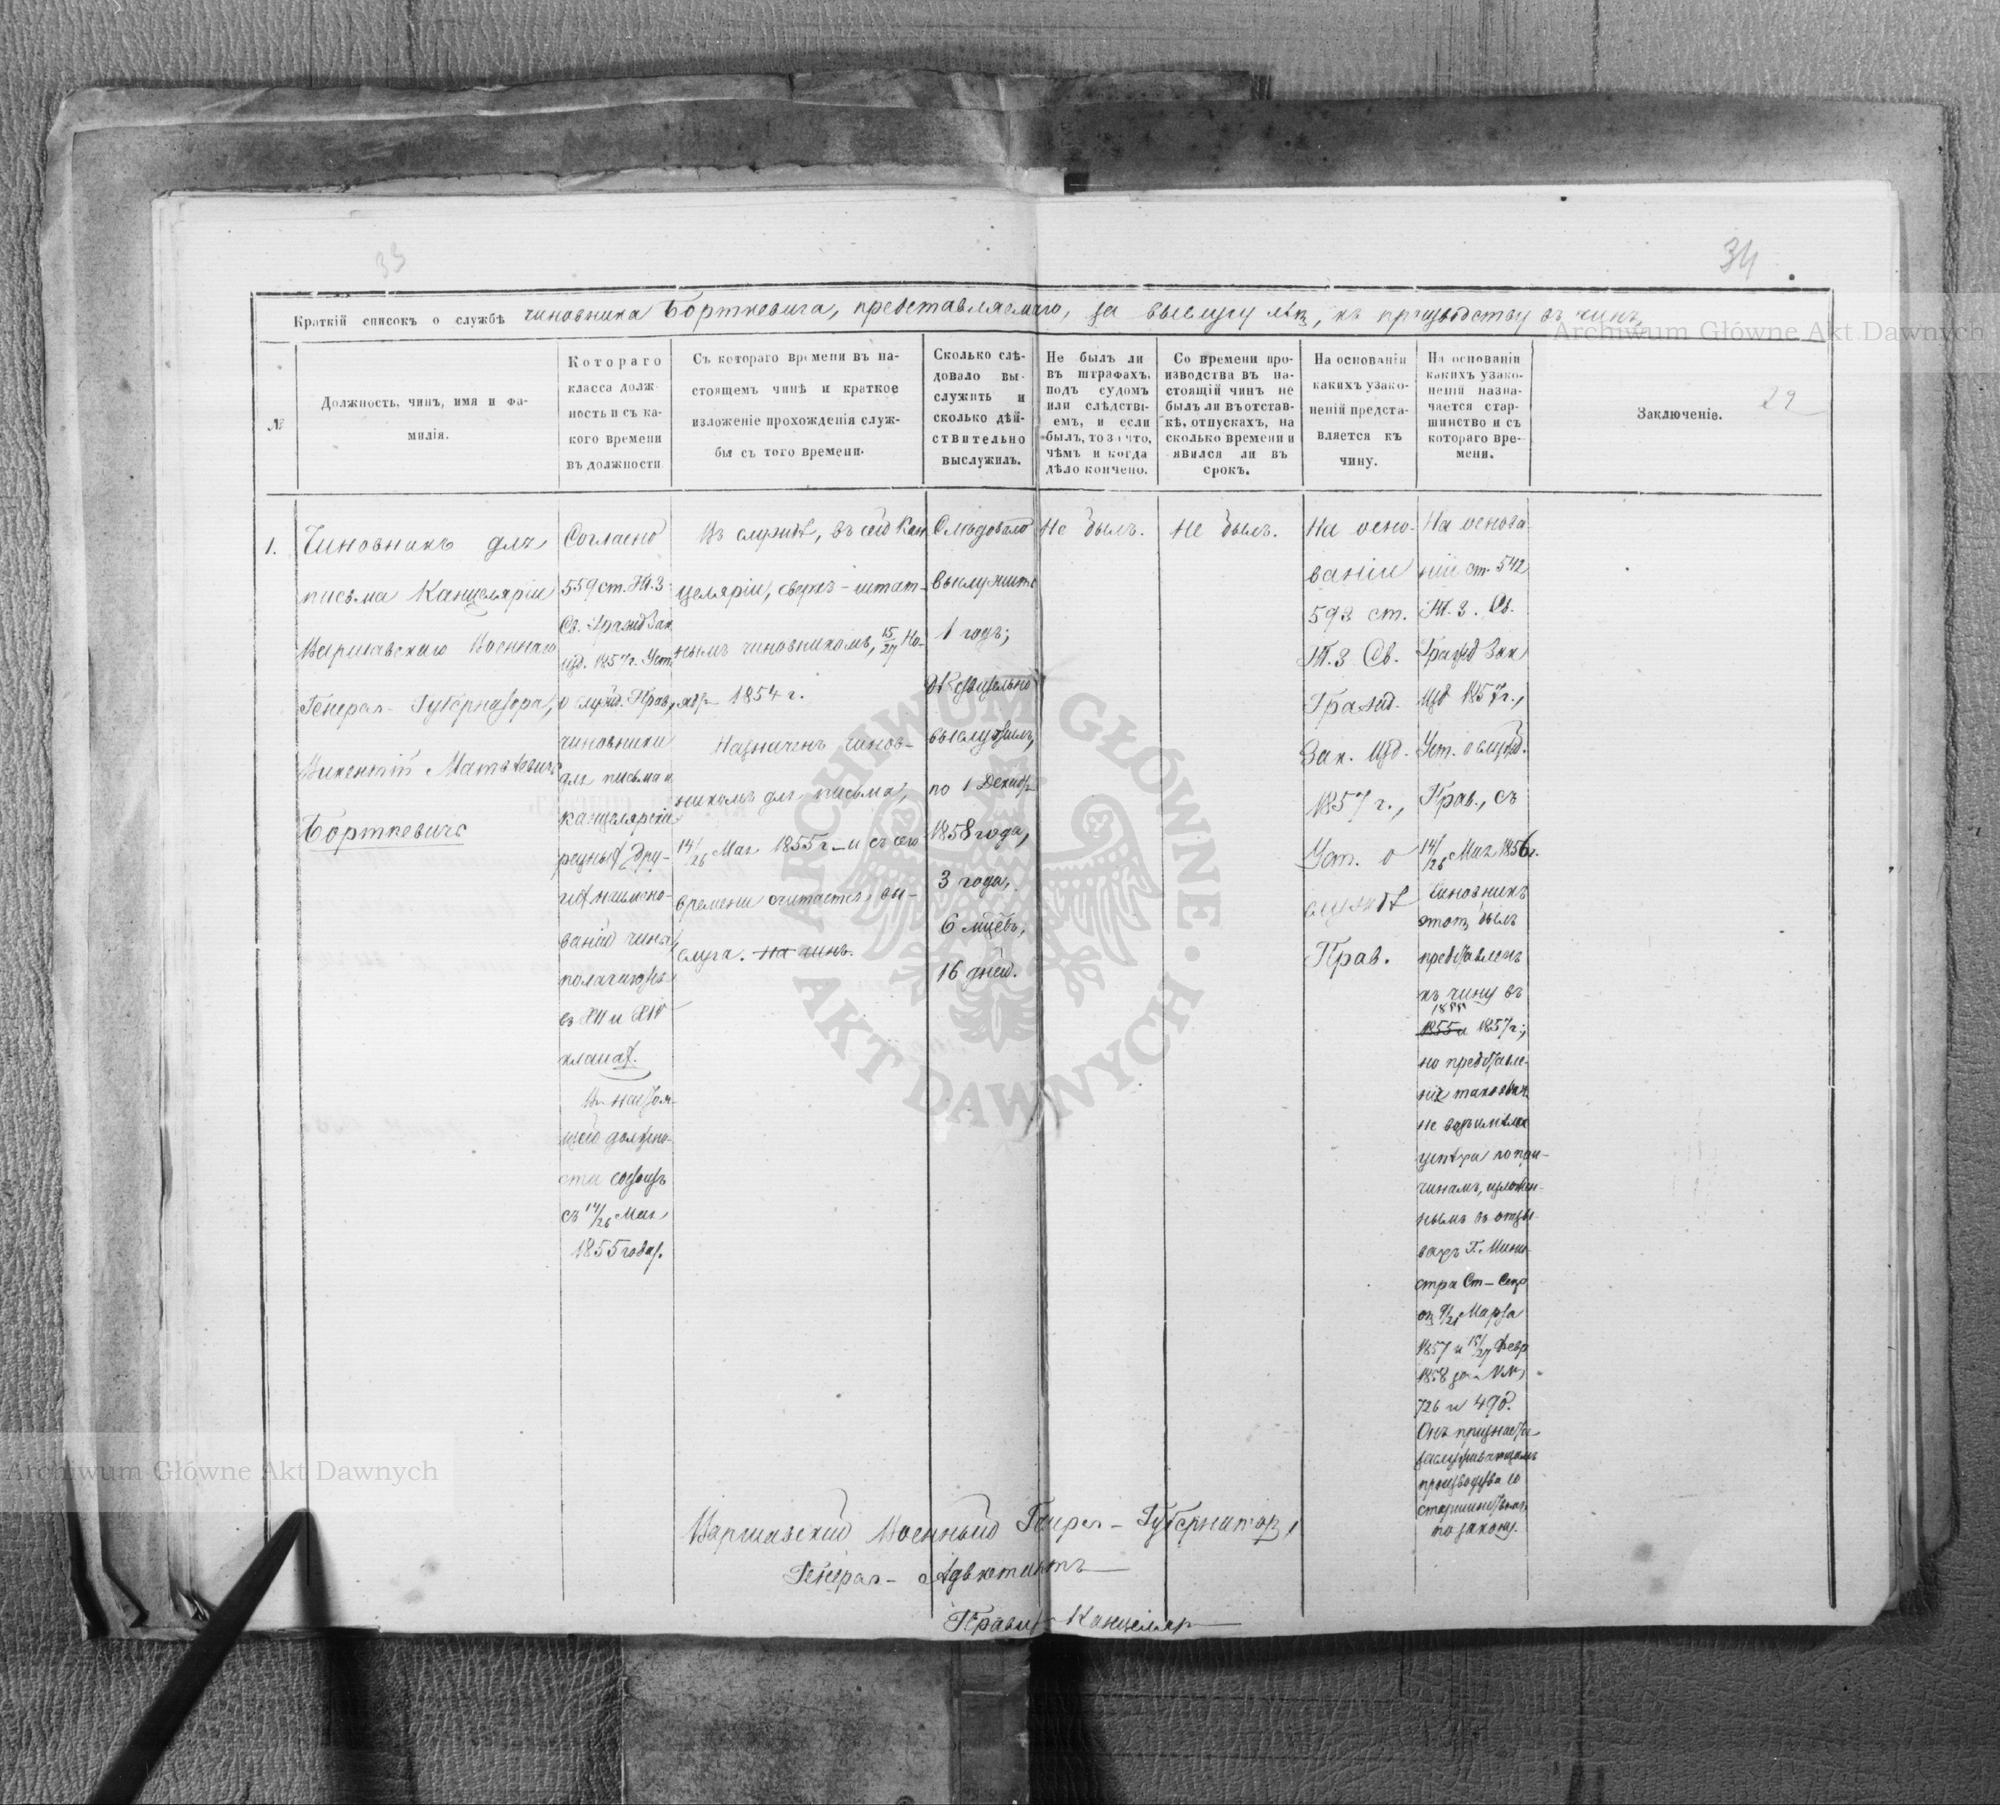 33
34
Краткій списокъ о службѣ чиновника Борткевича, представляемаго, за выслугу лѣтъ, къ производству въ чинъ.
Archiwum Główne Akt Dawnych
29
№
Должность, чинъ, имя и фа-
милія.
Котораго
класса долж-
ность и съ ка-
кого времени
въ должности
Съ котораго времени въ на-
стоящемъ чинѣ и краткое
изложеніе прохожденія служ-
бы съ того времени.
Сколько слѣ-
довало вы-
служить и
сколько дѣй-
ствительно
выслужилъ.
Не былъ ли
въ штрафахъ,
подъ судомъ
или слѣдстві-
емъ, и если
былъ, то за что,
чѣмъ и когда
дѣло кончено.
Со времени про-
изводства въ на-
стоящій чинъ не
былъ ли въ отстав-
кѣ, отпускахъ, на
сколько времени и
явился ли въ
срокъ.
На основаніи
какихъ узако-
неній предста-
вляется къ
чину.
На основаніи
какихъ узако-
неній назна-
чается стар-
шинство и съ
котораго вре-
мени.
Заключеніе.
1.
Чиновникъ для
письма Канцеляріи
Варшавскаго Военнаго
Генерал-Губернатора,
Викентій Матвѣевичъ
Борткевичъ
Согласно
559 ст. Т. 3
Св. Гражд Зак
изд. 1857 г. Уст.
о служб. Прав.,
чиновники
для письма и
канцелярскіе
разныхъ дру-
гихъ наимено-
ваній чины
полагаются
въ XII и XIV
класахъ.
Въ настоя-
щей должно-
сти состоитъ
съ 14/26 Мая
1855 года.
Въ службѣ, въ сей Кан
целяріи, сверх-штат-
нымъ чиновникомъ, 15/27 Но-
ябр 1854 г.
Назначенъ чинов-
никомъ для письма,
14/26 Мая 1855 г. и съ сего
времени считается вы-
слуга. на чинъ.
Слѣдовало
выслужить
1 годъ;
Дѣйствительно
выслужилъ,
по 1 Декабр
1858 года,
3 года,
6 мцевъ,
16 дней.
Не былъ.
Не былъ.
На осно-
ваніи
593 ст.
Т. 3 Св.
Гражд.
Зак. Изд.
1857 г.,
Уст. о
службѣ
Прав.
На основа
ніи ст. 542
Т. 3. Св.
Гражд Зак
Изд 1857 г.,
Уст. о служб.
Прав., съ
14/26 Мая 1856 г.
Чиновникъ
этотъ былъ
представленъ
къ чину въ
1855
1855 и 1857 г.;
но представле-
нія таковыя
не возъимѣли
успѣха по при-
чинамъ, изложен-
нымъ въ отзы-
вахъ Г. Мини-
стра Ст-Секр
отъ 9/21 Марта
1857 и 15/27 Февр
1858 за NN,
726 и 490.
Онъ признается
заслуживающимъ
производства со
старшинствомъ
по закону.
Варшавскій Военный Генерал-Губернаторъ,
Генерал-Адъютантъ
Правит Канцеляр
ARCHIWUM GŁÓWNE AKT DAWNYCH
Archiwum Główne Akt Dawnych